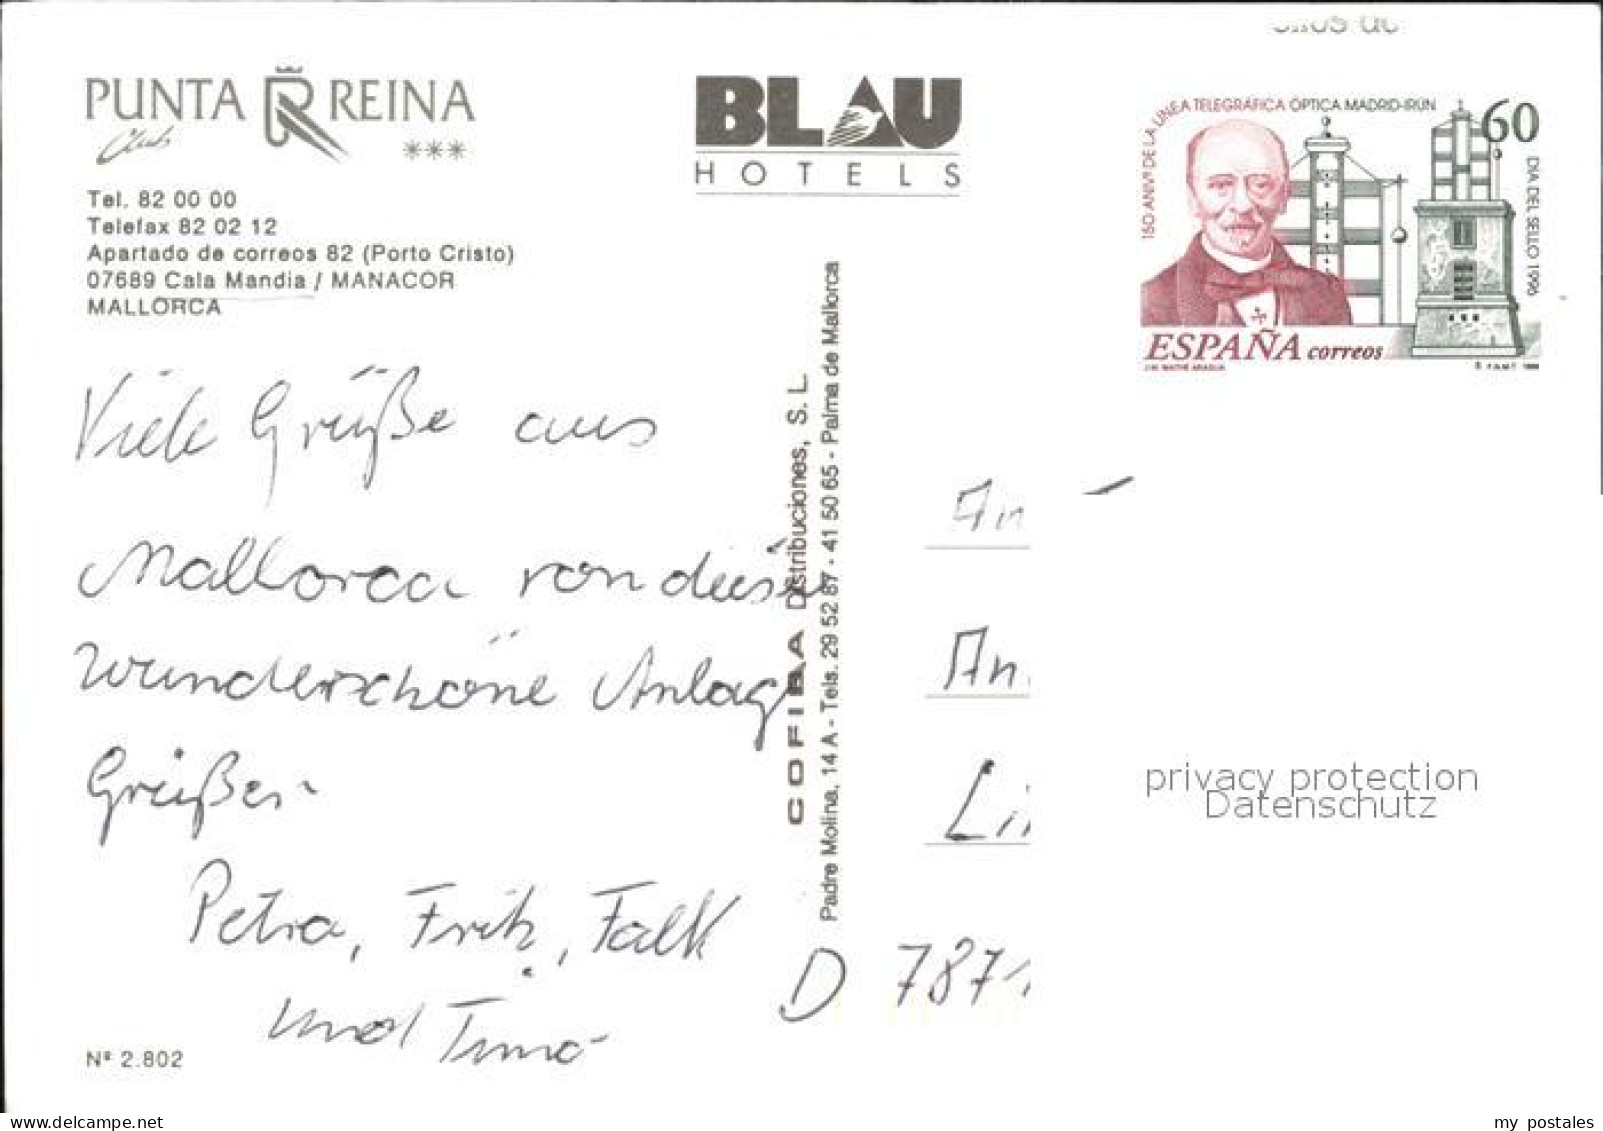 PUNTA REINA
Club
***
Tel. 82 00 00
Telefax 82 02 12
Apartado de correos 82 (Porto Cristo)
07689 Cala Mandia / MANACOR
MALLORCA
BLAU
HOTELS
150 ANIVº DE LA LÍNEA TELEGRÁFICA ÓPTICA MADRID-IRÚN
60
DIA DEL SELLO 1996
ESPAÑA correos
J.M. MATHÉ ARAGUA
F.N.M.T. 1996
Viele Grüße aus
Mallorca von dieser
wunderschöne Anlage
Grüßen
Petra, Fritz, Falk
und Timo
Nº 2.802
COFIBA Distribuciones, S. L.
Padre Molina, 14 A - Tels. 29 52 87 - 41 50 65 - Palma de Mallorca
An
D 787
privacy protection
Datenschutz
delcampe.net
my_postales